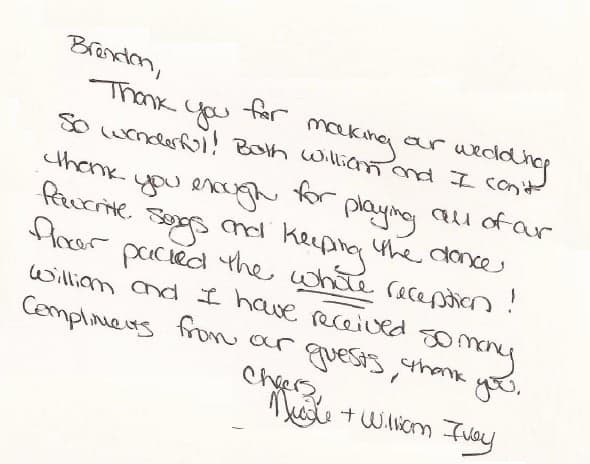 Brendan,
Thank you for making our wedding
so wonderful! Both William and I can't
thank you enough for playing all of our
favorite songs and keeping the dance
floor packed the whole reception!
William and I have received so many
compliments from our guests, thank you.
Cheers,
Nicole + William Ivey